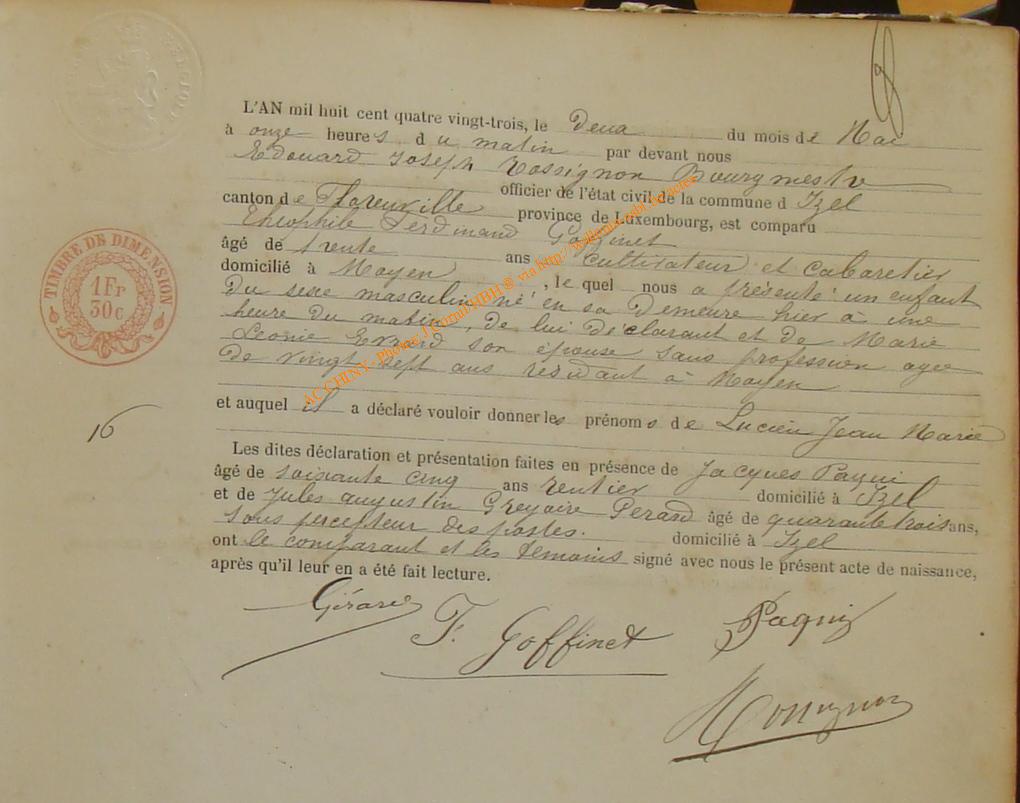 L'AN mil huit cent quatre vingt-trois, le Deux du mois de Mai
à onze heures du matin par devant nous
Edouard Joseph Rossignon Bourgmestre
officier de l'état civil de la commune d Izel
canton de Florenville province de Luxembourg, est comparu
Théophile Ferdinand Goffinet
âgé de trente ans cultivateur et cabaretier
domicilié à Moyen, le quel nous a présenté un enfant
Du sexe masculin né en sa Demeure hier à une
heure du matin, de lui Déclarant et de Marie
Leonie son épouse sans profession agee
De vingt sept ans residant à Moyen
et auquel il a déclaré vouloir donner les prénoms de Lucien Jean Marie
16
Les dites déclaration et présentation faites en présence de Jacques Paqui
âgé de soixante cinq ans rentier domicilié à Izel
et de Jules augustin Gregoire Gerard âgé de quarante trois ans,
Sous percepteur des postes. domicilié à Izel
ont le comparant et les temoins signé avec nous le présent acte de naissance,
après qu'il leur en a été fait lecture.
Gérard
F. Goffinet
Paquis
Rossignon
TIMBRE DE DIMENSION
1 Fr
30 c